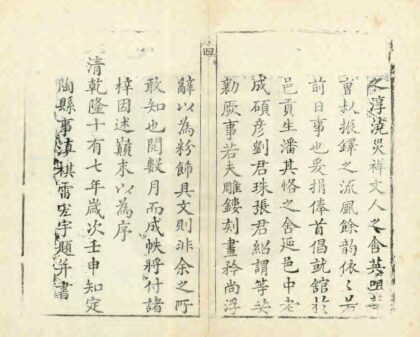 之淳澆災祥文人之含英咀
曾叔振鐸之流風餘韻依依若
前日事也爰捐俸首倡就館於
邑貢生潘其恪之舍延邑中老
成碩彥劉君珠張君紹謂等共
勷厥事若夫雕鏤刻畫矜尚浮
四
辭以為粉飾具文則非余之所
敢知也閱數月而成帙將付諸
梓因述巔末以為序
清乾隆十有七年歲次壬申知定
陶縣事滇棋雷宏宇題并書